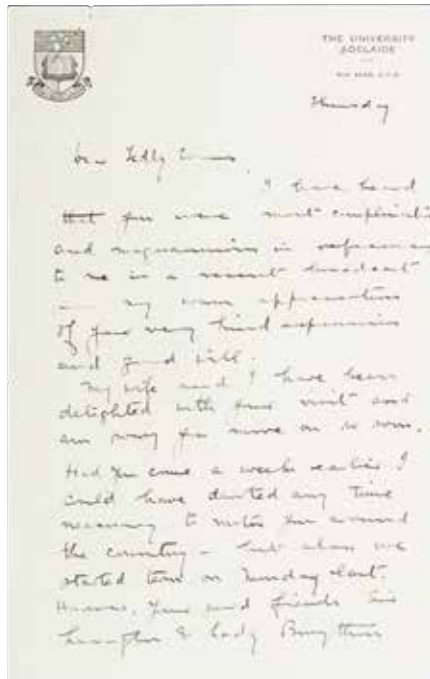 THE UNIVERSITY
ADELAIDE
Thursday
Dear Teddy Evans
I have heard
that you were most complimentary
and magnanimous in reference
to me in a recent broadcast
my warm appreciation
of your very kind expressions
and good will.
My wife and I have been
delighted with your visit and
are sorry you move on so soon.
Had you come a week earlier I
could have devoted any time
necessary to motor you around
the country – but alas we
started term on Tuesday last.
However, your good friends Sir
& Lady